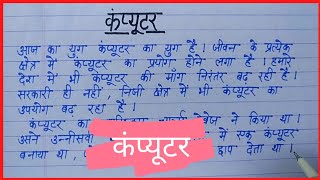 कंप्यूटर
आज का युग कंप्यूटर का युग है । जीवन के प्रत्येक
क्षेत्र में कंप्यूटर का प्रयोग होने लगा है । हमारे
देश में भी कंप्यूटर की माँग निरंतर बढ़ रही है ।
सरकारी ही नहीं, निजी क्षेत्र में भी कंप्यूटर का
उपयोग बढ़ रहा है ।
कंप्यूटर का बेबेज ने किया था ।
उसने उन्नीसवी में एक कंप्यूटर
बनाया था , छाप देता था ।
कंप्यूटर